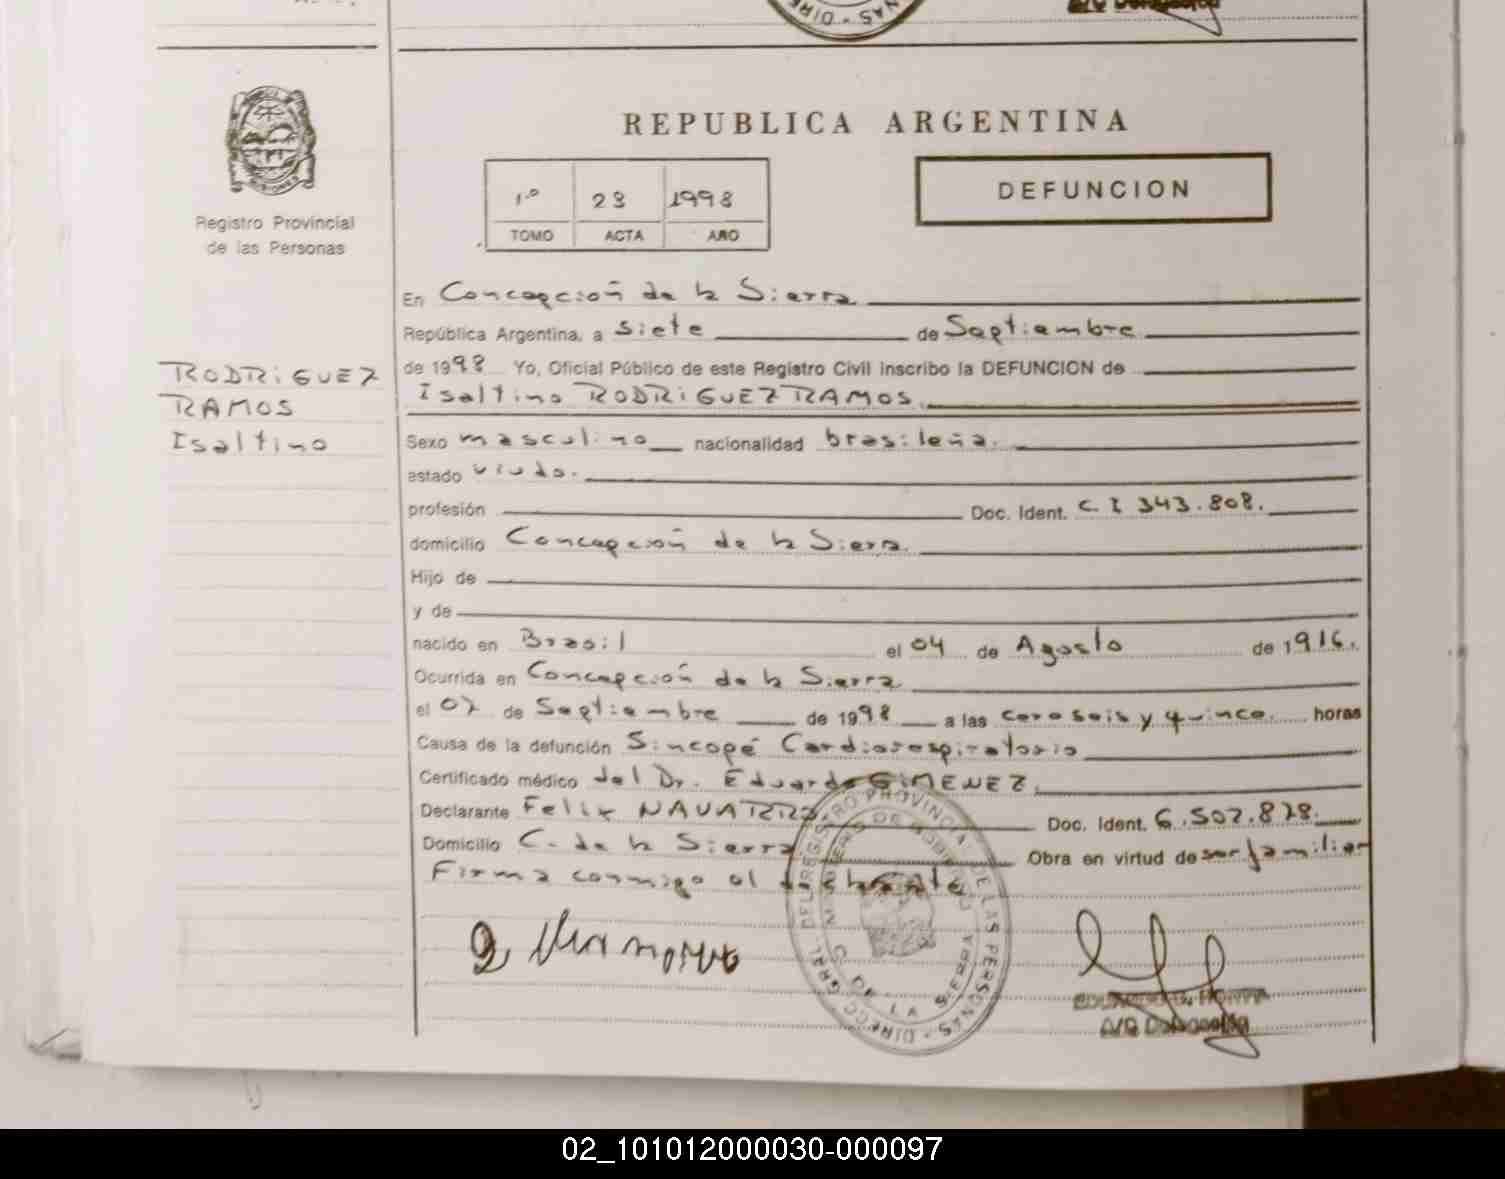 REPUBLICA ARGENTINA
DEFUNCION
1º 23 1998
TOMO ACTA AÑO
Registro Provincial
de las Personas
RODRIGUEZ
RAMOS
Isaltino
En Concepción de la Sierra
República Argentina, a siete de Septiembre
de 1998 Yo, Oficial Público de este Registro Civil inscribo la DEFUNCION de
Isaltino RODRIGUEZ RAMOS.
Sexo masculino nacionalidad brasileña.
estado viudo.
profesión Doc. Ident. C I 343.808.
domicilio Concepción de la Sierra.
Hijo de
y de
nacido en Brasil el 04 de Agosto de 1916.
Ocurrida en Concepción de la Sierra
el 07 de Septiembre de 1998 a las cero seis y quince. horas
Causa de la defunción Sincopé Cardiorespiratorio
Certificado médico del Dr. Eduardo GIMENEZ.
Declarante Felix NAVARRO. Doc. Ident. 6.507.878.
Domicilio C. de la Sierra Obra en virtud de ser familiar
Firma conmigo el
DIRECC. GRAL. DEL REGISTRO PROVINCIAL DE LAS PERSONAS
MINISTERIO DE GOBIERNO
C. DE LA SIERRA
A/C Delegación
02_101012000030-000097